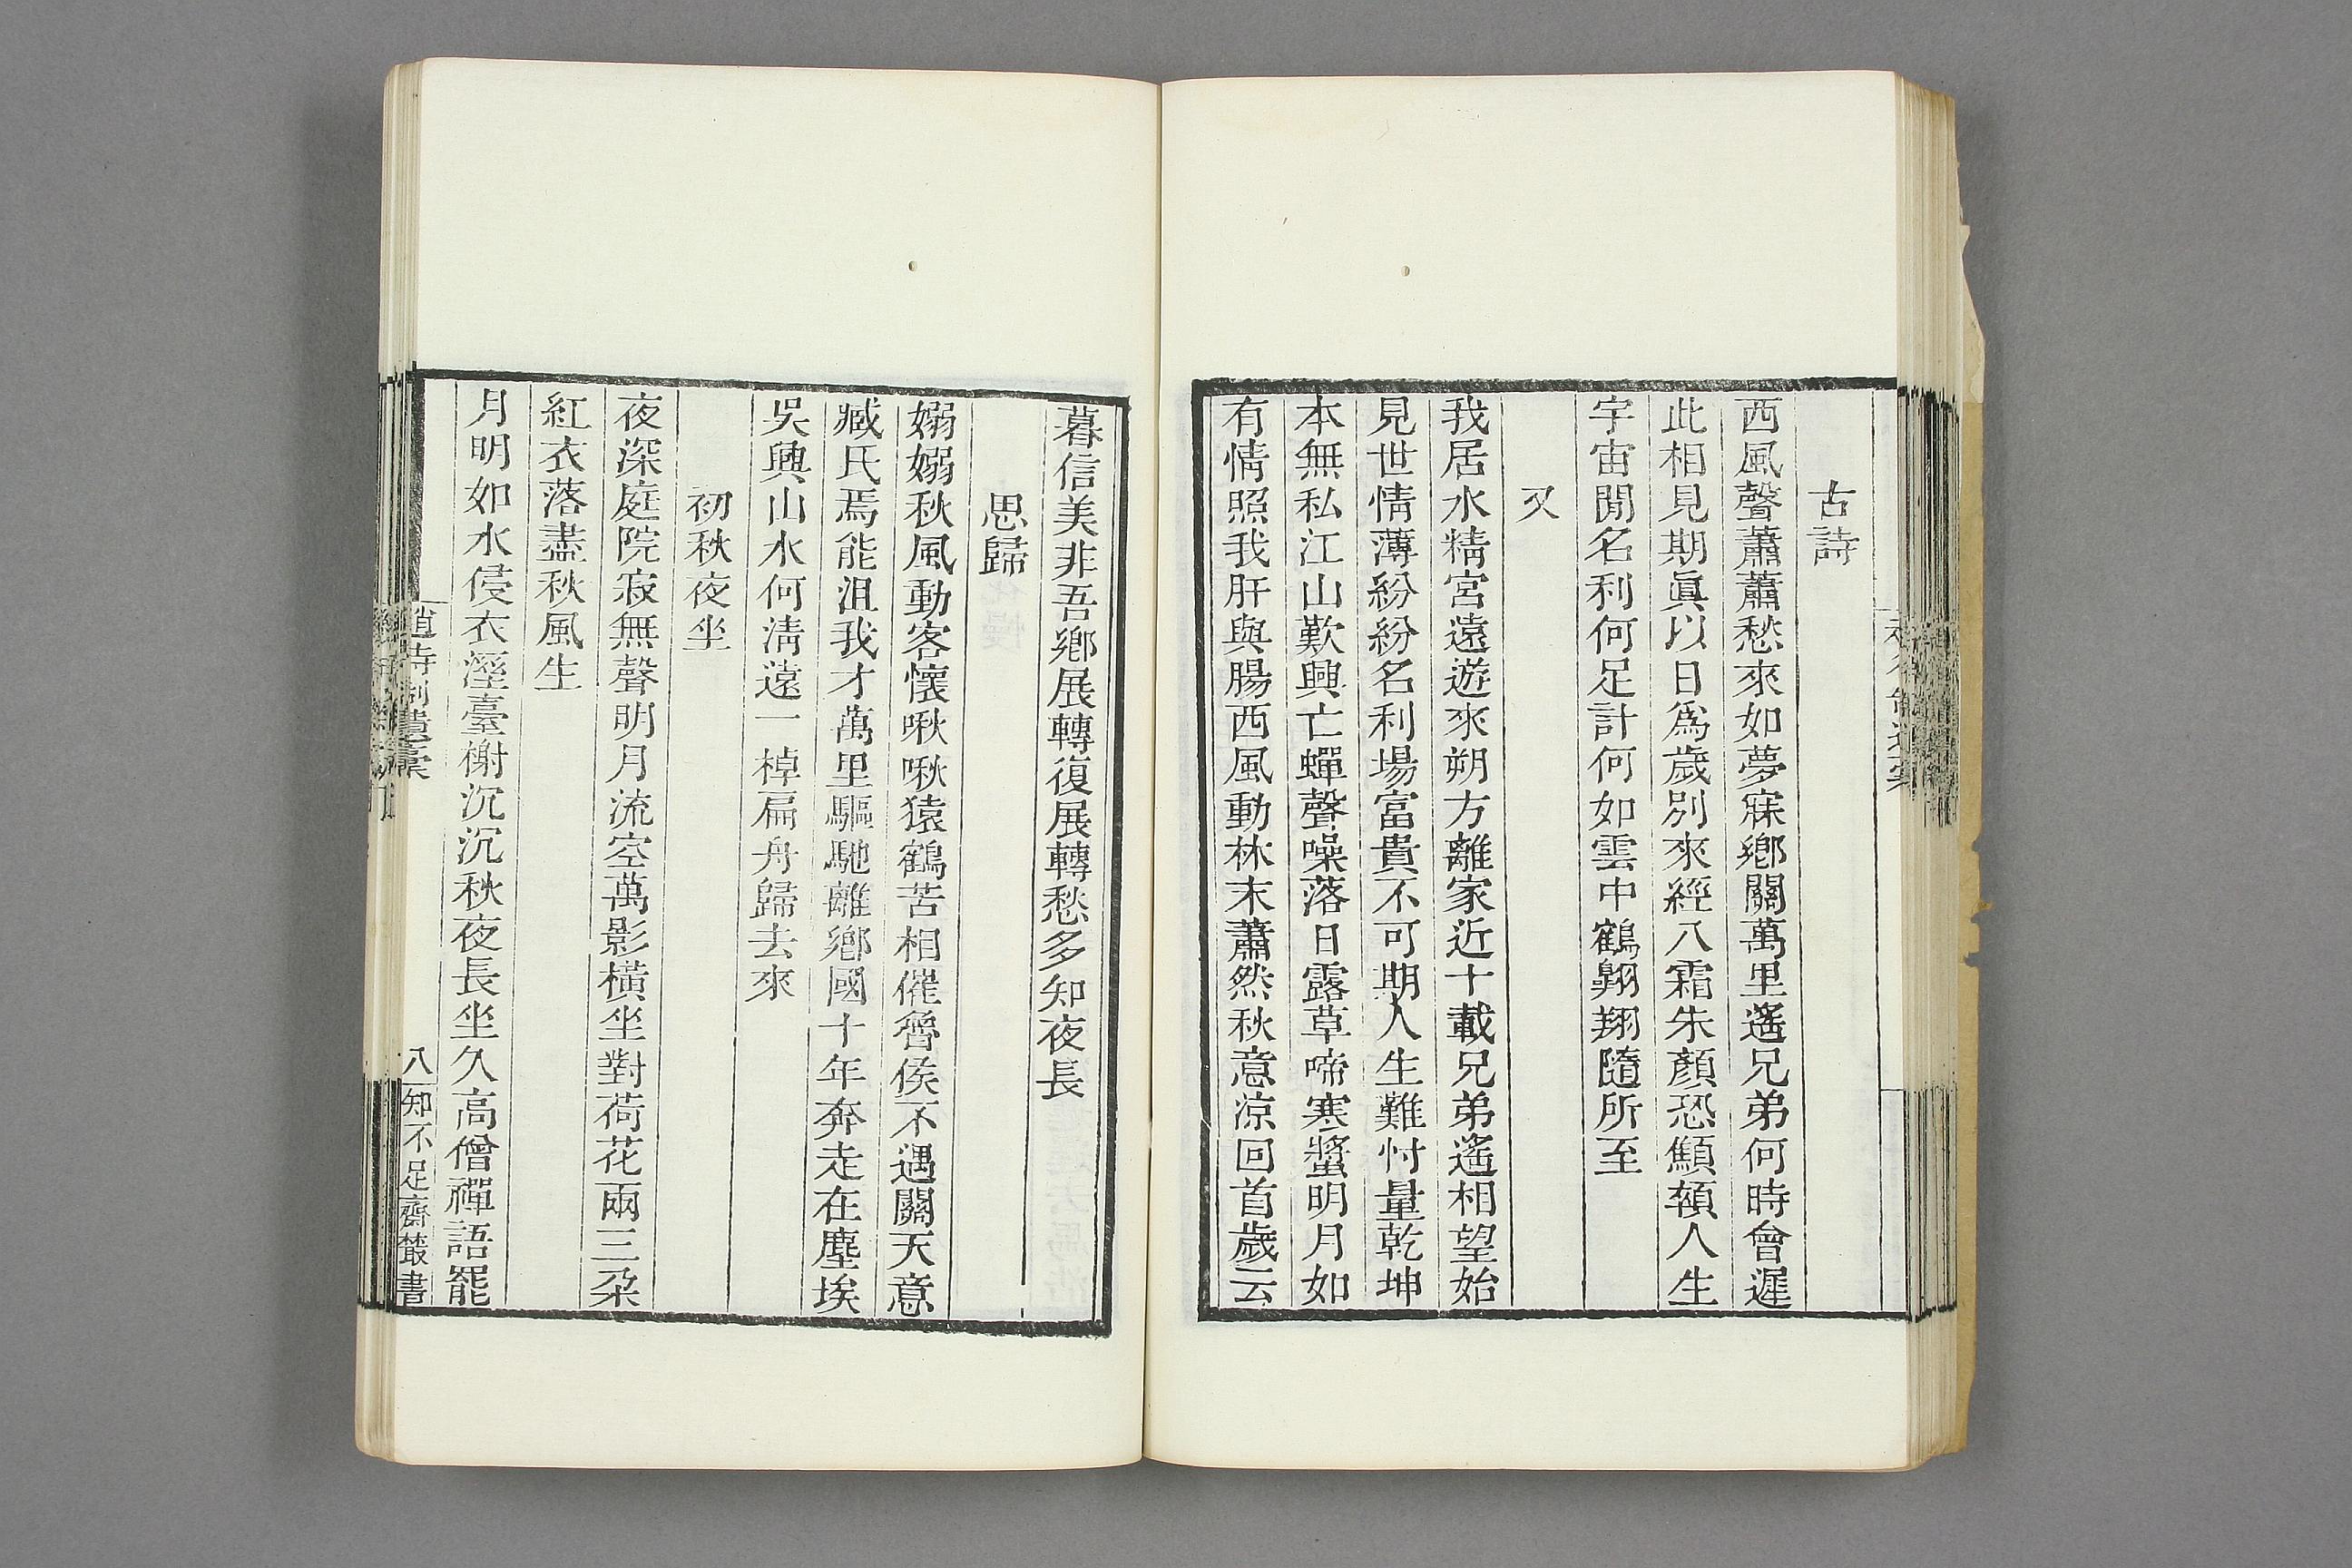 古詩
西風聲蕭蕭愁來如夢寐鄉關萬里遙兄弟何時會遲
此相見期眞以日爲歲別來經八霜朱顏恐顦顇人生
宇宙閒名利何足計何如雲中鶴翺翔隨所至
又
我居水精宮遠遊來朔方離家近十載兄弟遙相望始
見世情薄紛紛名利場富貴不可期人生難忖量乾坤
本無私江山歎興亡蟬聲噪落日露草啼寒螿明月如
有情照我肝與腸西風動林末蕭然秋意涼回首歲云
暮信美非吾鄉展轉復展轉愁多知夜長
思歸
嫋嫋秋風動客懷啾啾猿鶴苦相催魯侯不遇關天意
臧氏焉能沮我才萬里驅馳離鄉國十年奔走在塵埃
吳興山水何淸遠一棹扁舟歸去來
初秋夜坐
夜深庭院寂無聲明月流空萬影橫坐對荷花兩三朶
紅衣落盡秋風生
月明如水侵衣溼臺榭沉沉秋夜長坐久高僧禪語罷
趙待制遺稾
八
知不足齋叢書